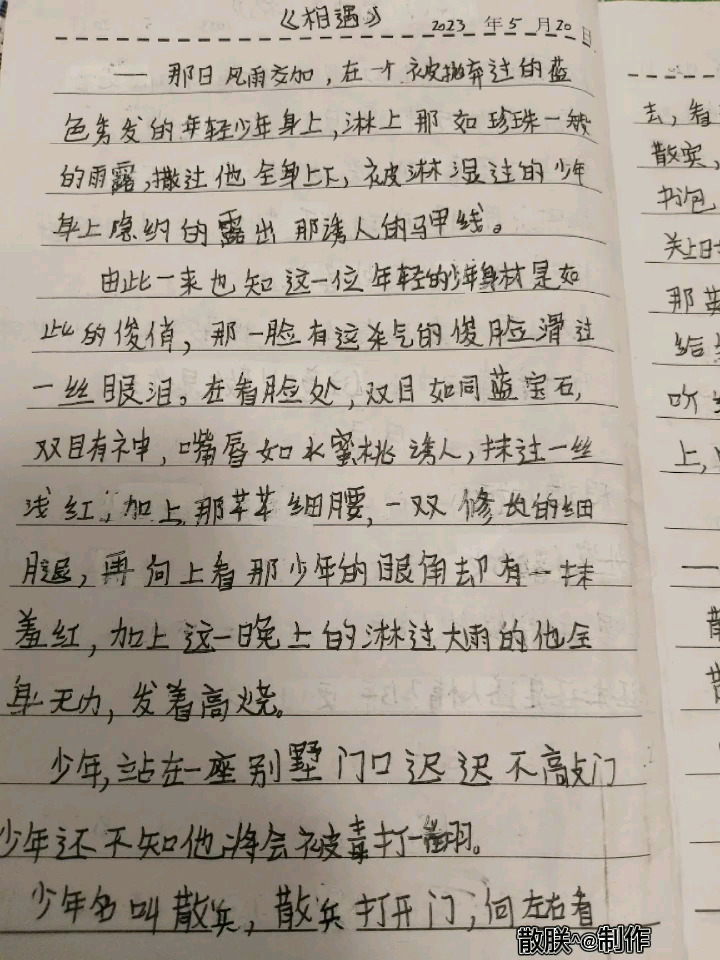 《相遇》 2023年5月20日
一 那日风雨交加，在一个被抛弃过的蓝
色秀发的年轻少年身上，淋上那如珍珠一般
的雨露，撒过他全身上下，被淋湿过的少年
身上隐约的露出那诱人的马甲线。
由此一来也知这一位年轻的少年身材是如
此的俊俏，那一脸有这杀气的俊脸滑过
一丝眼泪。在看脸处，双目如同蓝宝石，
双目有神，嘴唇如水蜜桃诱人，抹过一丝
浅红，加上那芊芊细腰，一双修长的细
腿，再向上看那少年的眼角却有一抹
羞红，加上这一晚上的淋过大雨的他全
身无力，发着高烧。
少年，站在一座别墅门口迟迟不敲门
少年还不知他将会被毒打一
少年名叫散兵，散兵打开门，向左右看
去，看
散兵，
书包，
关上
那
给
吹
上，
散
散朕^@制作